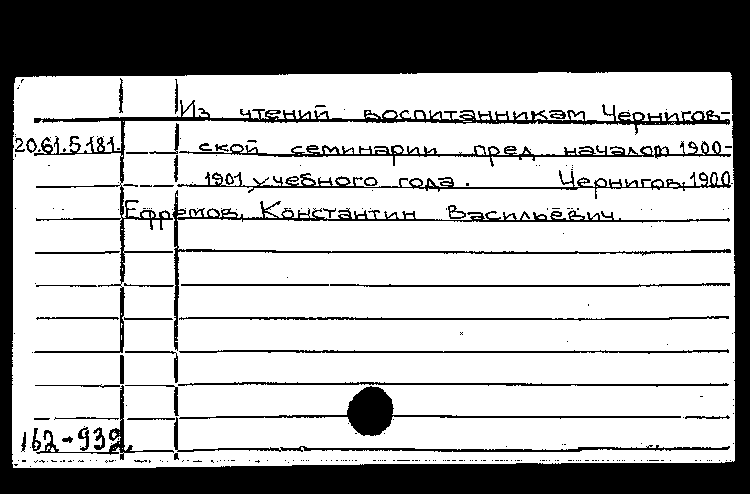 Из чтений воспитанникам Чернигов-
20.61.5.181. ской семинарии пред началом 1900-
1901 учебного года. Чернигов, 1900
Ефремов, Константин Васильевич.
162-932